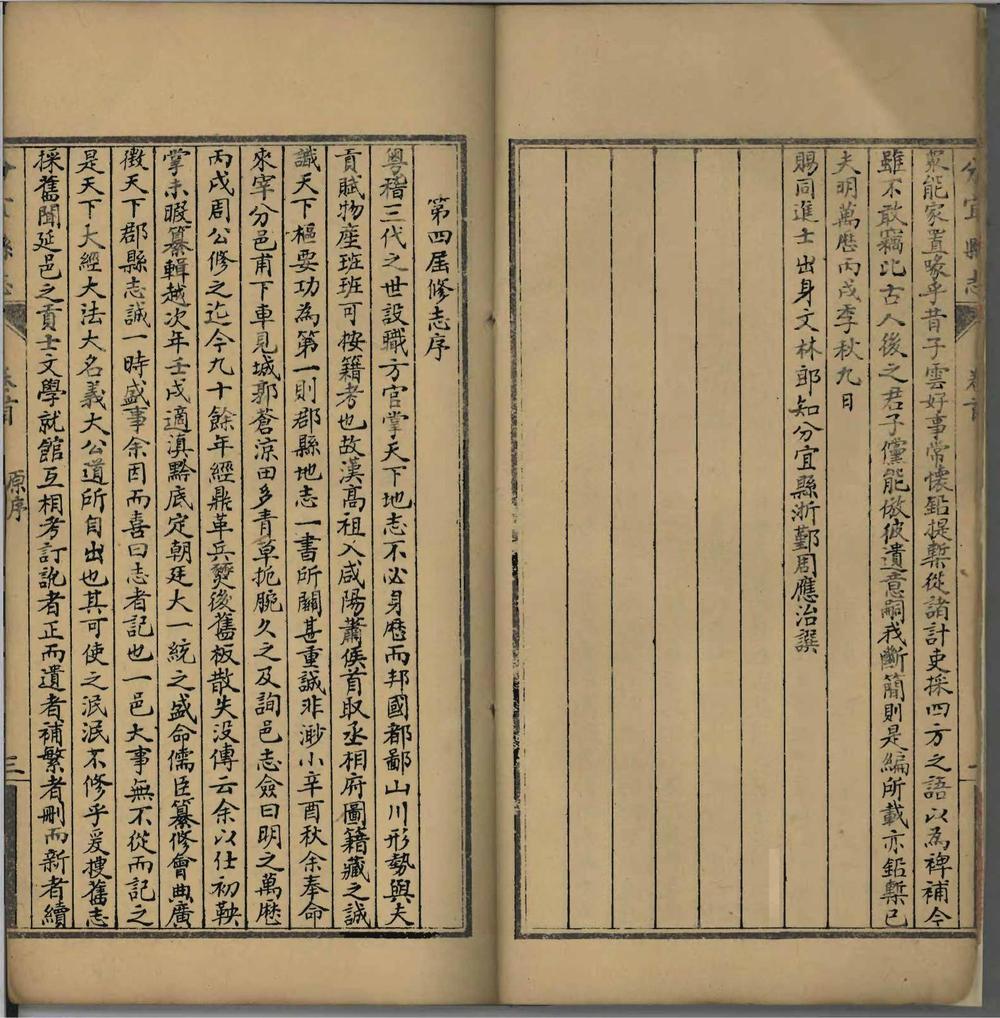 分宜縣志 卷首 一
衆能家置喙乎昔子雲好事常懷鉛提槧從諸計吏採四方之語以為裨補今
雖不敢竊比古人後之君子儻能倣彼遺意嗣我斷簡則是編所載亦鉛槧已
夫明萬曆丙戌季秋九日
賜同進士出身文林郎知分宜縣浙鄞周應治譔
第四屆修志序
粵稽三代之世設職方官掌天下地志不必身歷而邦國都鄙山川形勢與夫
貢賦物產班班可按籍考也故漢高祖入咸陽蕭侯首取丞相府圖籍藏之誠
識天下樞要功為第一則郡縣地志一書所關甚重誠非渺小辛酉秋余奉命
來宰分邑甫下車見城郭蒼涼田多青草扼腕久之及詢邑志僉曰明之萬曆
丙戌周公修之迄今九十餘年經鼎革兵燹後舊板散失没傳云余以仕初鞅
掌未暇纂輯越次年壬戌適滇黔底定朝廷大一統之盛命儒臣纂修會典廣
徵天下郡縣志誠一時盛事余因而喜曰志者記也一邑大事無不從而記之
是天下大經大法大名義大公道所自出也其可使之泯泯不修乎爰搜舊志
採舊聞延邑之貢士文學就館互相考訂訛者正而遺者補繁者刪而新者續
分宜縣志 卷首 原序 三